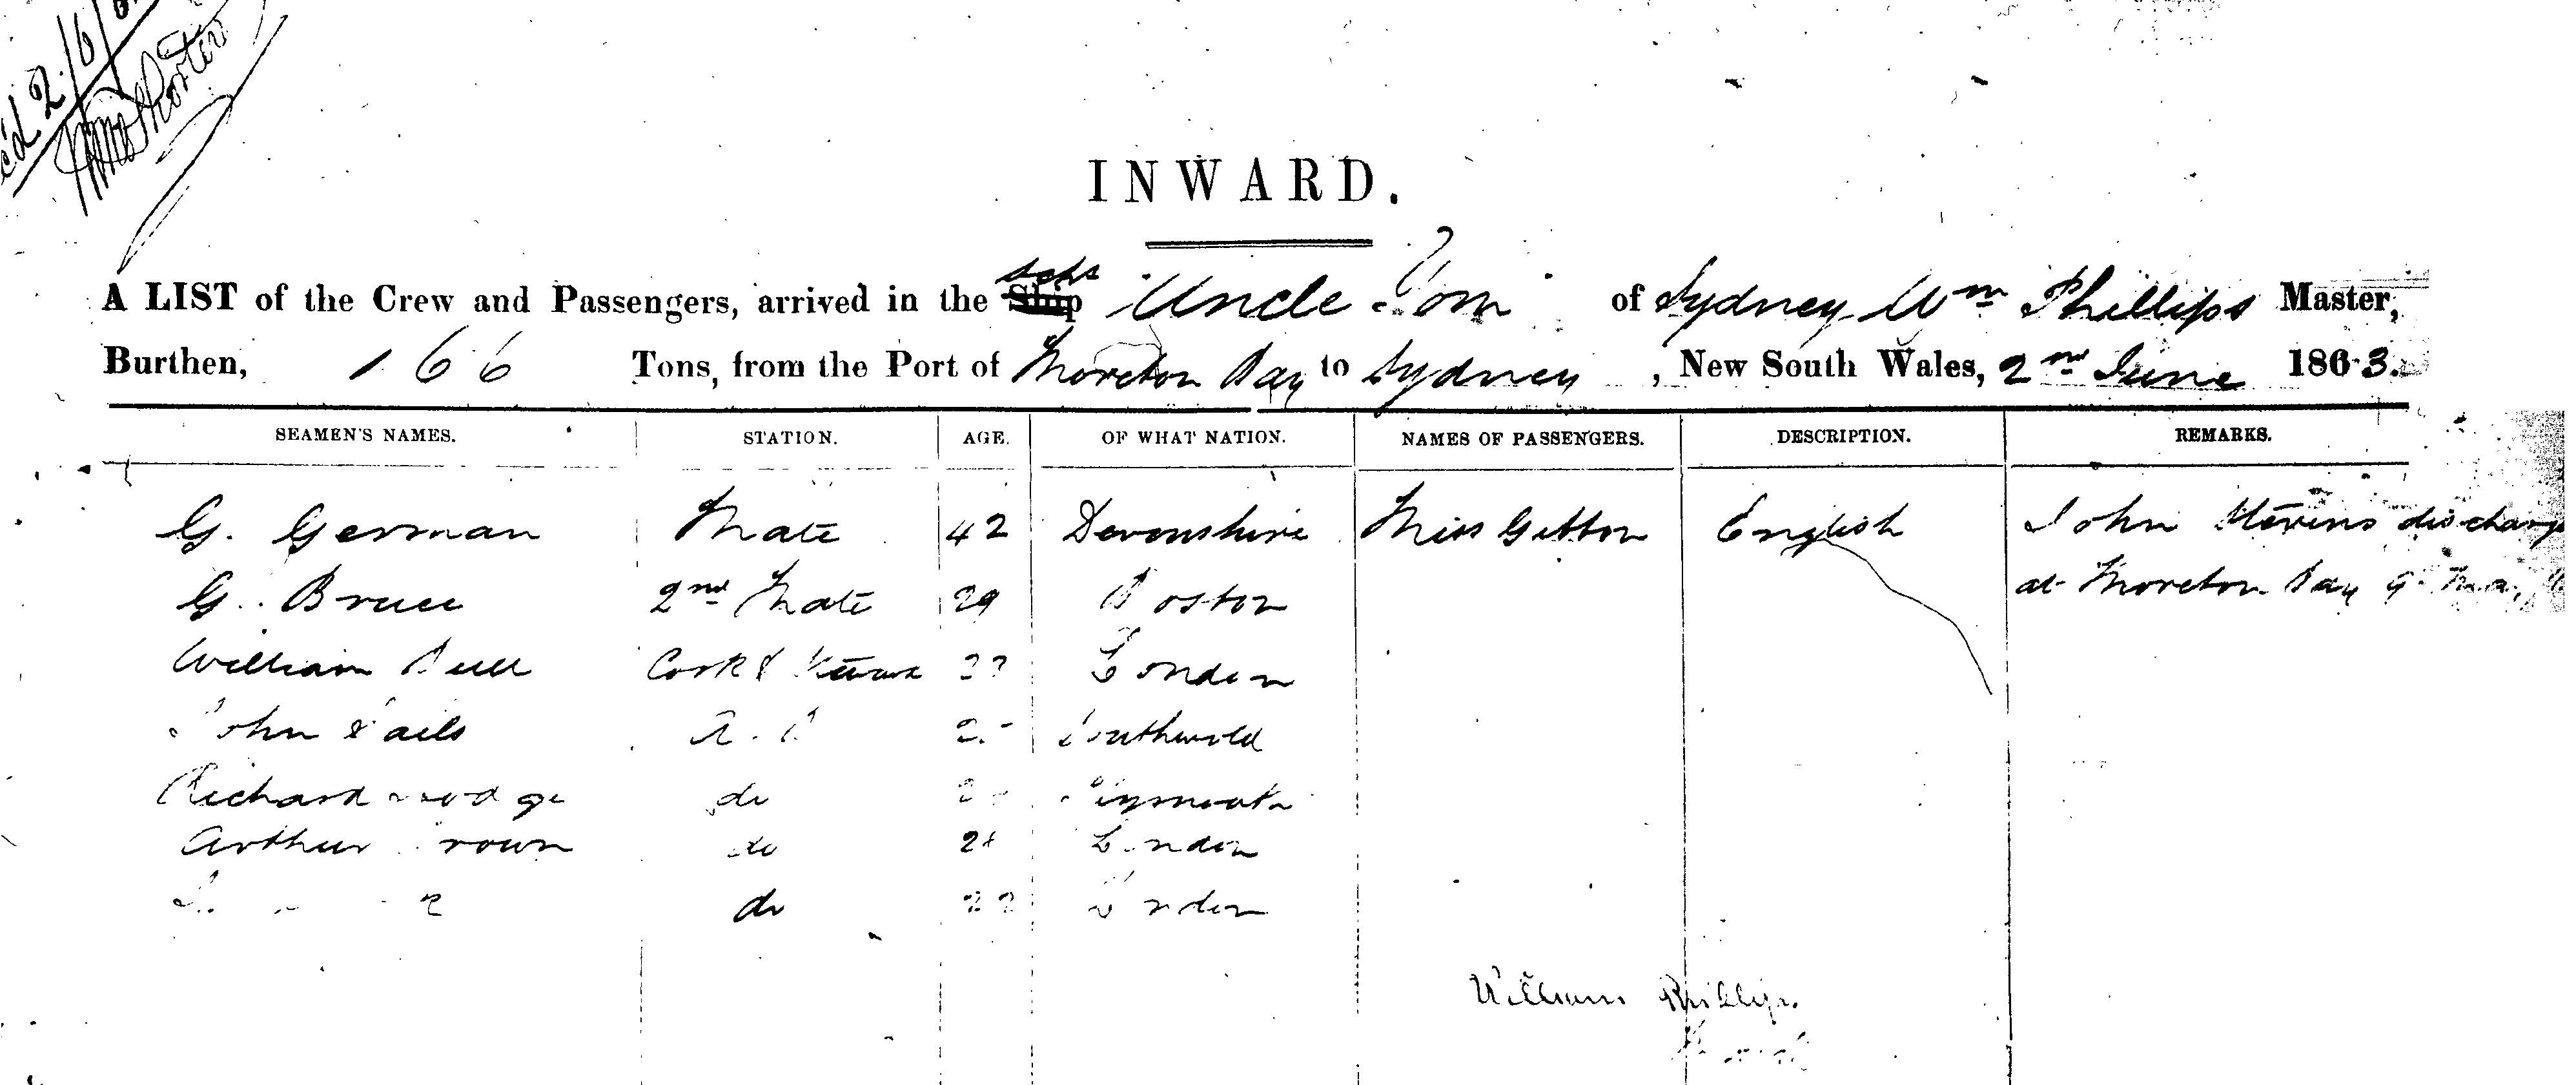 INWARD.
A LIST of the Crew and Passengers, arrived in the Ship Schr "Uncle Tom" of Sydney Wm Phillips Master,
Burthen, 166 Tons, from the Port of Moreton Bay to Sydney, New South Wales, 2nd June 1863.
SEAMEN'S NAMES. STATION. AGE. OF WHAT NATION. NAMES OF PASSENGERS. DESCRIPTION. REMARKS.
G. German Mate 42 Devonshire Miss Gibbon English John Stevens discharg
G. Bruce 2nd Mate 29 Boston at Moreton Bay 9
William Bull Cook & Steward London
John A. Southwold
Richard do Plymouth
Arthur Brown do London
do 22 London
William Phillips